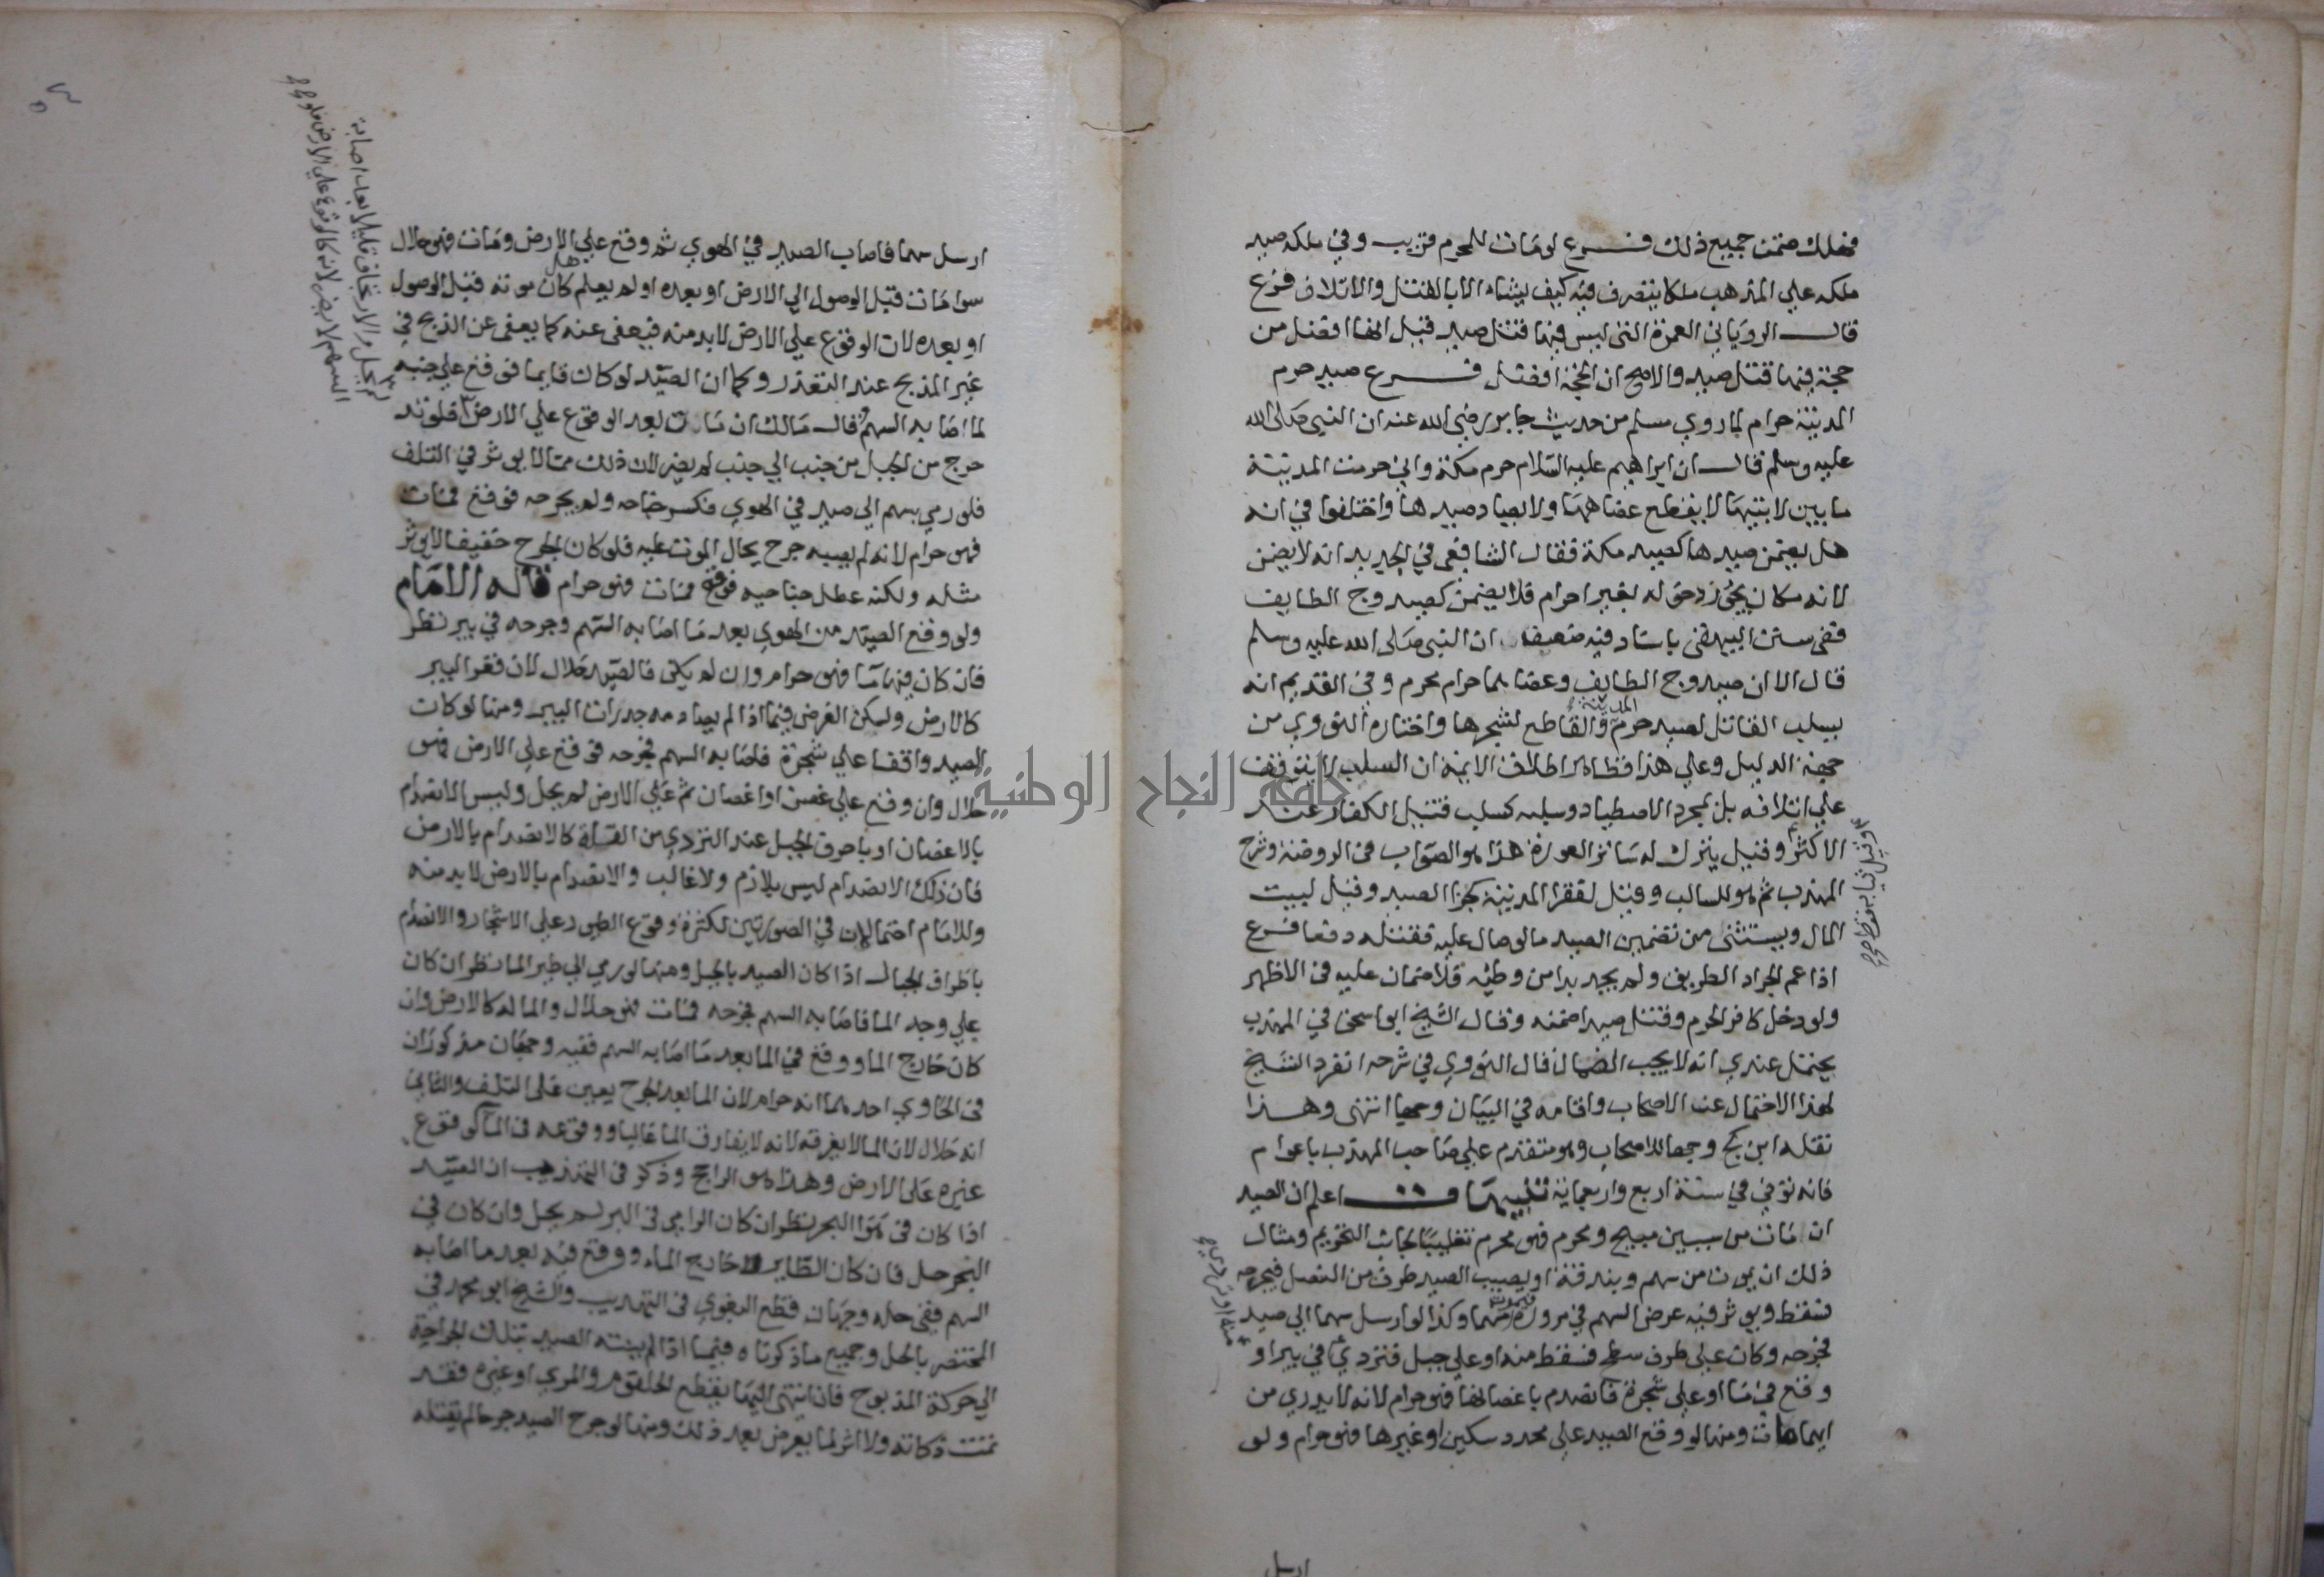 فهلك ضمن جميع ذلك فرع لو مات للمحرم قريب وفي ملكه صيد
ملكه علي المذهب ملكا يتصرف فيه كيف يشاء الا بالقتل والاتلاف فرع
قال الروياني العمرة التي ليس فيها قتل صيد قيل انها افضل من
حجة فيها قتل صيد والاصح ان الحجة افضل فرع صيد حرم
المدينة حرام لما روي مسلم من حديث جابر رضي الله عنه ان النبي صلى الله
عليه وسلم قال ان ابراهيم عليه السلام حرم مكة واني حرمت المدينة
ما بين لابتيها لا يقطع عضاهها ولا يصاد صيدها واختلفوا في انه
هل يضمن صيدها كصيد مكة فقال الشافعي في الجديد انه لا يضمن
لانه مكان يجوز دخوله بغير احرام فلا يضمن كصيد وج الطايف
ففي سنن البيهقي باسناد فيه ضعف ان النبي صلى الله عليه وسلم
قال الا ان صيد وج الطايف وعضاهها حرام محرم وفي القديم انه
يسلب القاتل لصيد حرم المدينة والقاطع لشجرها واختاره النووي من
جهة الدليل وعلي هذا فظاهر اطلاق الايمة ان السلب لا يتوقف
علي اتلافه بل بمجرد الاصطياد وسلبه كسلب قتيل الكفار عند
الاكثر وقيل يترك له ساتر العورة هذا هو الصواب في الروضة وشرح
وقيل ثيابه فقط صح
المهذب ثم هو للسالب وقيل لفقرا المدينة كجزا الصيد وقيل لبيت
المال ويستثنى من تضمين الصيد ما لو صال عليه فقتله دفعا فرع
اذا عم الجراد الطريق ولم يجد بدا من وطئه فلا ضمان عليه في الاظهر
ولو دخل كافر الحرم وقتل صيدا ضمنه وقال الشيخ ابو اسحق في المهذب
يحتمل عندي انه لا يجب الضمان قال النووي في شرحه انفرد الشيخ
بهذا الاحتمال عند الاصحاب واقامه في البيان وجها انتهى وهذا
نقله ابن كج وجها للاصحاب وهو متقدم علي صاحب المهذب باعوام
فانه توفي في سنة اربع واربعماية تنبيهات اعلم ان الصيد
ان مات من سببين مبيح ومحرم فهو محرم تغليبا لجانب التحريم ومثال
ذلك ان يموت من سهم وبندقة او يصيب الصيد طرف من النصل فيجرحه
ويؤثر فيه عرض السهم في مروره فيموت منهما وكذا لو ارسل سهما الي صيد
فجرحه وكان علي طرف سطح فسقط منه او علي جبل فتردي منه او في بير او
وقع في ما او علي شجرة فانصدم باغصانها فهو حرام لانه لا يدري من
ايهما مات ومنها لو وقع الصيد علي محدد سكين او غيرها فهو حرام ولو
ارسل
ارسل سهما فاصاب الصيد في الهوي ثم وقع علي الارض ومات فهو حلال
سوا مات قبل الوصول الي الارض او بعده او لم يعلم هل كان موته قبل الوصول
او بعده لان الوقوع علي الارض لا بد منه فيعفى عنه كما يعفى عن الذبح في
غير المذبح عند التعذر وكما ان الصيد لو كان قايما فوقع علي جنبه
لما اصابه السهم قال مالك ان مات بعد الوقوع علي الارض فلو تد
حرج من الجبل من جنب الي جنب لم يضر لان ذلك مما لا يوثر في التلف
فلو رمي بسهم الي صيد في الهوي فكسر جناحه ولم يجرحه فوقع فمات
فهو حرام لانه لم يصبه جرح يحال الموت عليه فلو كان الجرح خفيفا لا يوثر
مثله ولكنه عطل جناحيه فوقع فمات فهو حرام قاله الامام
ولو وقع الصيد من الهوي بعد ما اصابه السهم وجرحه في بير نظر
فان كان فيها ما فهو حرام وان لم يكن فالصيد حلال لان قعر البير
كالارض وليكن الفرض فيما اذا لم يصادمه جدران البير ومنها لو كان
الصيد واقفا علي شجرة فاصابه السهم فجرحه فوقع علي الارض فهو
حلال وان وقع علي غصن او اغصان ثم علي الارض لم يحل وليس الانصدام
بالاغصان او باحرف الجبل عند التردي من القلة كالانصدام بالارض
فان ذلك الانصدام ليس بلازم ولا غالب والانصدام بالارض لا بد منه
وللامام احتمالان في الصورتين لكثرة وقوع الطيور علي الاشجار والانصدام
باطراف الجبال اذا كان الصيد بالجبل ومنها لو رمي الي طير الما نظر ان كان
علي وجه الما فاصابه السهم فجرحه فمات فهو حلال والما له كالارض وان
كان خارج الما ووقع في الما بعد ما اصابه السهم ففيه وجهان مذكوران
في الحاوي احدهما انه حرام لان الما بعد الجرح يعين على التلف والثاني
انه حلال لان الما لا يغرقه لانه لا يفارق الما غالبا ووقوعه في الما كوقوع
غيره على الارض وهذا هو الراجح وذكر في التهذيب ان الصيد
اذا كان في هوا البحر نظر ان كان الرامي في البر لم يحل وان كان في
البحر حل فان كان الطاير خارج الماء ووقع فيه بعد ما اصابه
السهم ففي حله وجهان وقطع البغوي في التهذيب والشيخ ابو محمد في
المختصر بالحل وجميع ما ذكرناه فيما اذا لم ينته الصيد بتلك الجراحة
الي حركة المذبوح فان انتهى اليها بقطع الحلقوم والمري او غيره فقد
تمت ذكاته ولا اثر لما يعرض بعد ذلك ومنها لو جرح الصيد جرحا لم يقتله